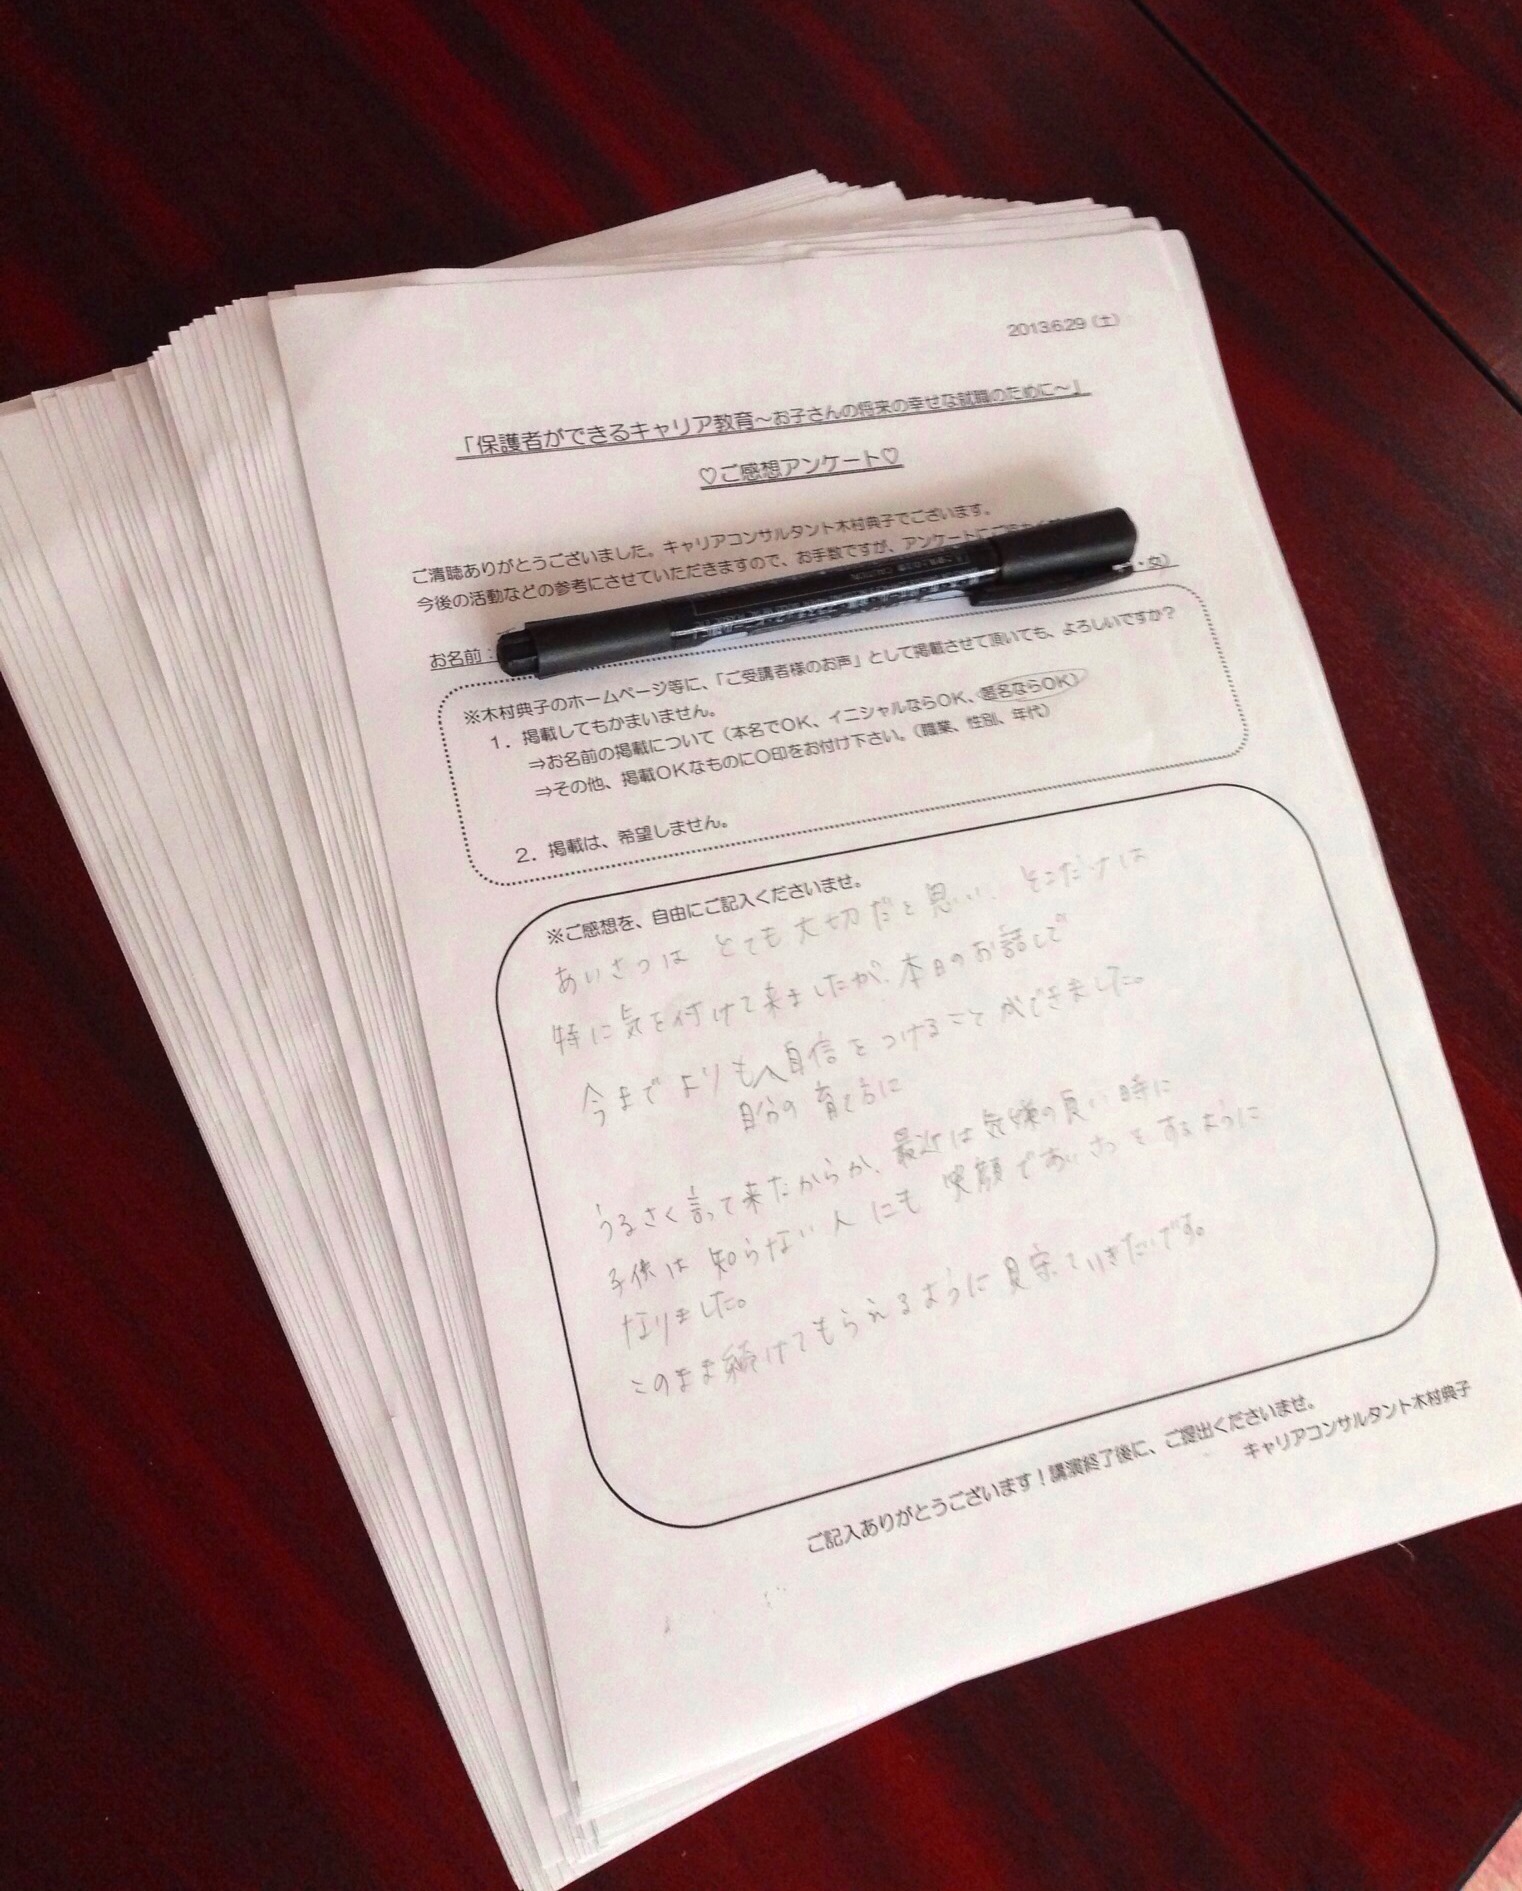 2013.6.29（土）
「保護者ができるキャリア教育～お子さんの将来の幸せな就職のために～」
♡ご感想アンケート♡
ご清聴ありがとうございました。キャリアコンサルタント木村典子でございます。
今後の活動などの参考にさせていただきますので、お手数ですが、アンケートにご
お名前：
・女）
※木村典子のホームページ等に、「ご受講者様のお声」として掲載させて頂いても、よろしいですか？
１．掲載してもかまいません。
⇒お名前の掲載について（本名でOK、イニシャルならOK、匿名ならOK）
⇒その他、掲載OKなものに○印をお付け下さい。（職業、性別、年代）
２．掲載は、希望しません。
※ご感想を、自由にご記入くださいませ。
あいさつは とても大切だと思い、そこだけは
特に気を付けて来ましたが、本日のお話しで
今までよりも自信をつけることができました。
自分の育て方に
うるさく言って来たからか、最近は気嫌の良い時に
子供は知らない人にも笑顔であいさつをするように
なりました。
このまま続けてもらえるように見守っていきたいです。
ご記入ありがとうございます！講演終了後に、ご提出くださいませ。
キャリアコンサルタント木村典子